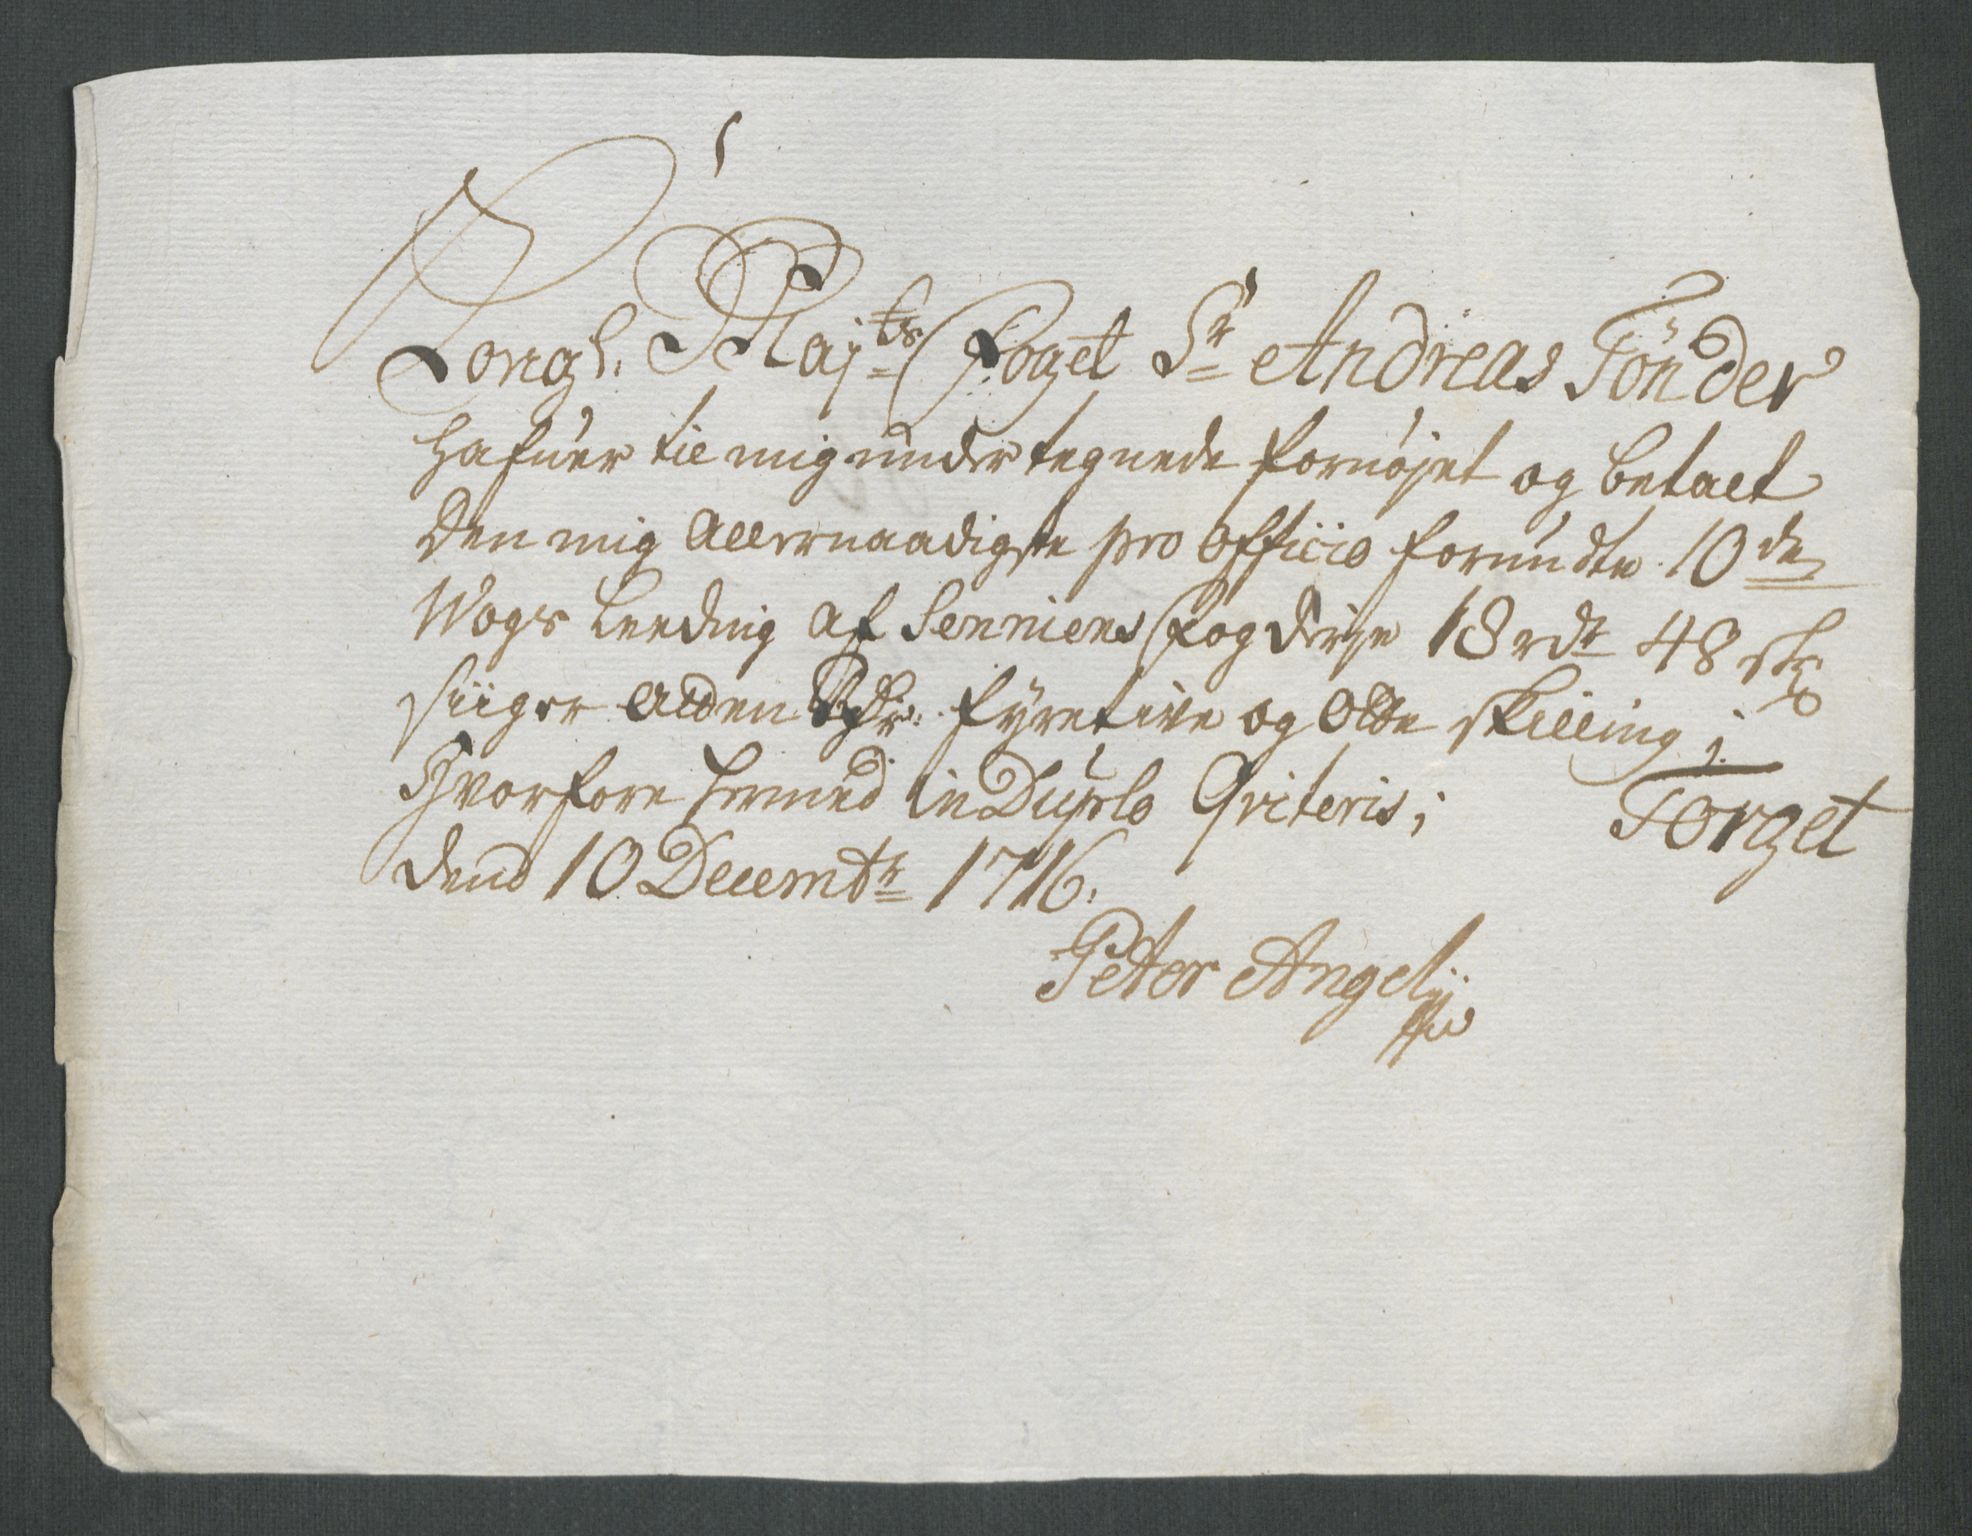 Kongl: Maj:ts Foget Sr Andreas Tönder
hafuer til mig undertegnede fornøjet og betalt
den mig allernaadigste pro officio forundte 10de
Wogs Leeding af Senniens Fogderje 18 rdr 48 sk
siiger Atten Rdr: fyretive og Otte skilling;
Hvorfore hermed in Duplo Qviteris; Torget
dend 10 Decembr 1716.
Peter Angell